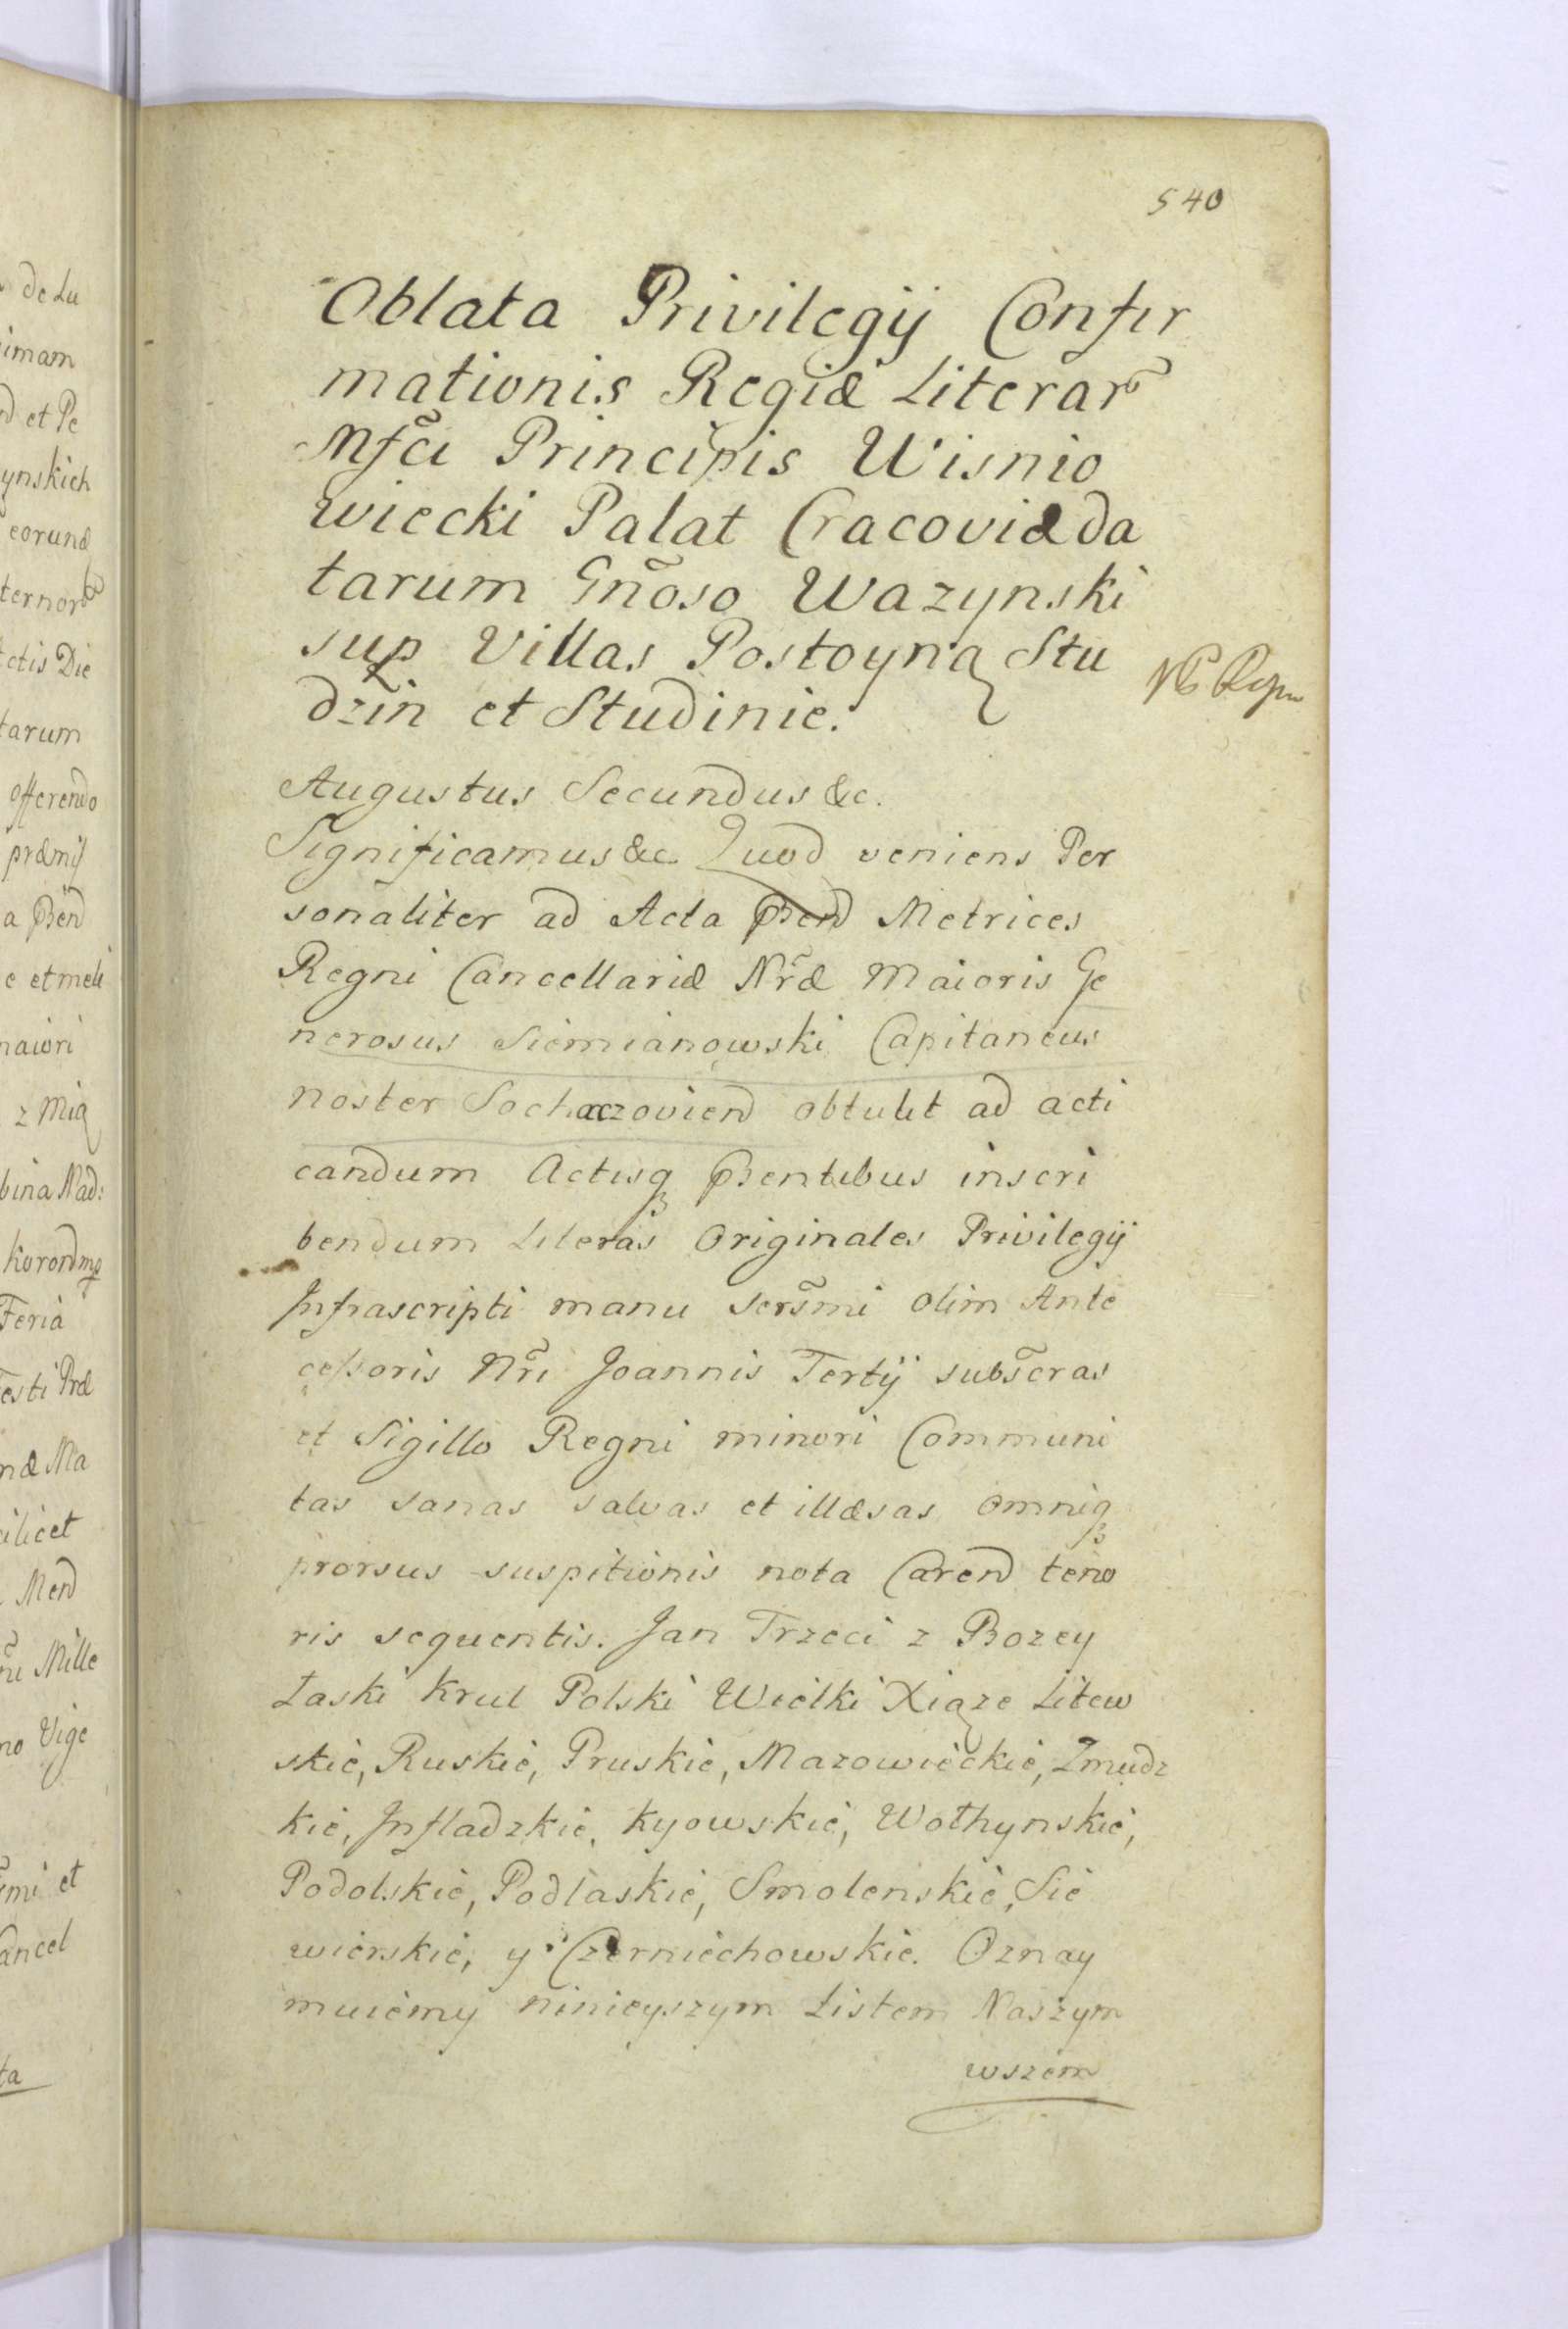 540
Oblata Privilegij Confir
mationis Regiæ Literar̃
Mfc̃i Principis Wisnio
wiecki Palat Cracoviæ da
tarum Gñoso Wazynski
sup Villas Postoyną Stu
dzin et Studinie.
Augustus Secundus &c.
Significamus &c. Quod veniens Per
sonaliter ad Acta præn̄d Metrices
Regni Cancellariæ Nr̃æ Maioris Ge
nerosus Siemianowski Capitaneus
noster Sochaczoviend obtulit ad acti
candum Actisq præntibus inscri
bendum Literas Originales Privilegij
Infrascripti manu Sers̃mi olim Ante
cessoris Nr̃i Joannis Tertij subs̃cras
et Sigillo Regni minori Communi
tas sanas salvas et illæsas omniq
prorsus suspitionis nota Carend teno
ris sequentis. Jan Trzeci z Bozey
Łaski Krul Polski Wielki Xiąze Litew
skie, Ruskie, Pruskie, Mazowieckie, Zmudz
kie, Infladzkie, Kyowskie, Wołhynskie,
Podolskie, Podlaskie, Smolenskie, Sie
wierskie, y Czerniechowskie. Oznay
muiemy ninieyszym Listem Naszym
wszem
de Lu
imam
d et Pe
ynskich
eorund
ternor
ctis Die
tarum
offerendo
præmis
a præn̄d
e et meli
maiori
z Mią
bina Nad:
Feria
esti Præ
næ Ma
cilicet
Mend
Mille
no Vige
mi et
ancel
ta